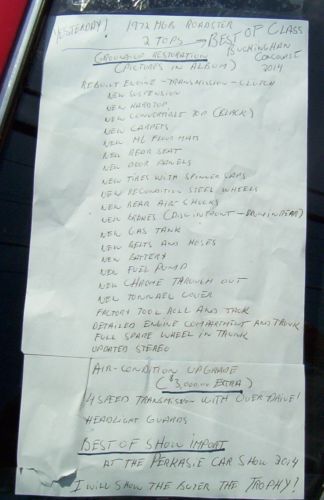 YESTERDAY! 1972 MGB ROADSTER
2 TOPS → BEST OF CLASS
BUCKINGHAM
CONCOURSE
2014
GROUND UP RESTORATION
(PICTURES IN ALBUM)
REBUILT ENGINE - TRANSMISSION - CLUTCH
NEW SUSPENSION
NEW HARDTOP
NEW CONVERTABLE TOP (BLACK)
NEW CARPETS
NEW MG FLOOR MATS
NEW REAR SEAT
NEW DOOR PANELS
NEW TIRES WITH SPINNER CAPS
NEW RECONDITION STEEL WHEELS
NEW REAR AIR SHOCKS
NEW BRAKES (DISC IN FRONT - DRUM IN REAR)
NEW GAS TANK
NEW BELTS AND HOSES
NEW BATTERY
NEW FUEL PUMP
NEW CHROME THROUGH OUT
NEW TONNAEL COVER
FACTORY TOOL ROLL AND JACK
DETAILED ENGINE COMPARTMENT AND TRUNK
FULL SPARE WHEEL IN TRUNK
UPDATED STEREO
AIR-CONDITION UPGRADE
($3,000.00 EXTRA)
4 SPEED TRANSMISSION WITH OVERDRIVE!
HEADLIGHT GUARDS
BEST OF SHOW IMPORT
AT THE PERKASIE CAR SHOW 2014
I WILL SHOW THE BUYER THE TROPHY!